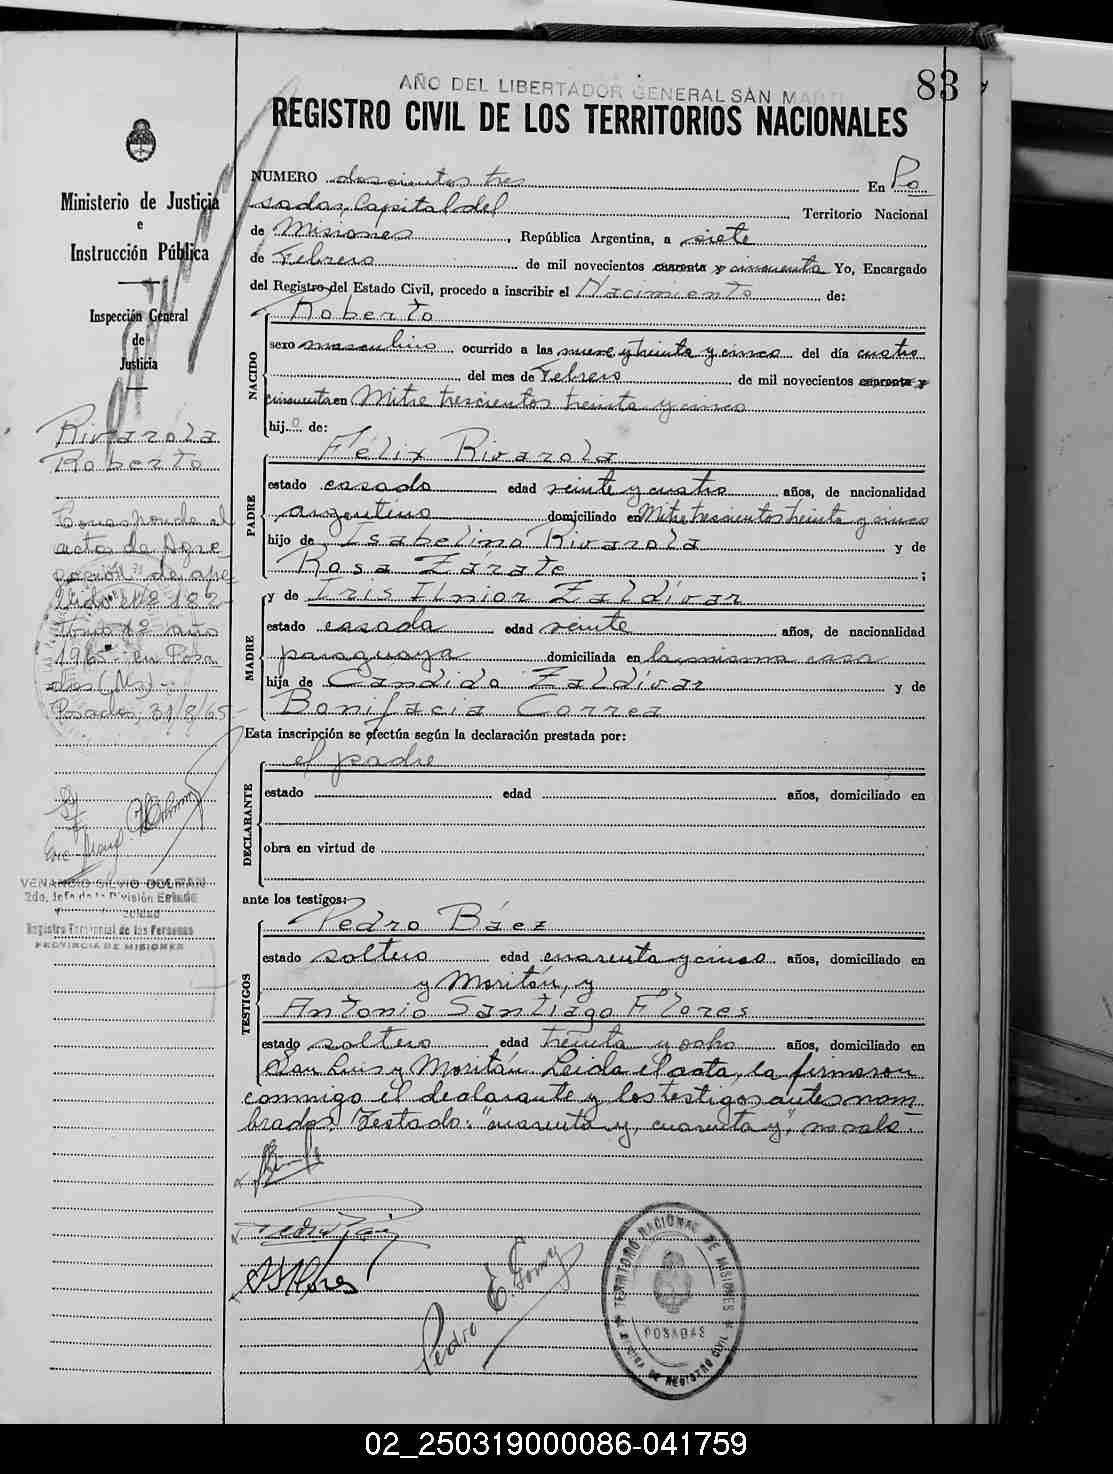 AÑO DEL LIBERTADOR GENERAL SAN MARTI
83
REGISTRO CIVIL DE LOS TERRITORIOS NACIONALES
Ministerio de Justicia
e
Instrucción Pública
Inspección General
de
Justicia
Rivarola
Roberto
Corresponde al
acta de Agre-
gación de ape
llido Nº 182-
Tomo 1º año
1965- en Posa
das (Ms)-
Posadas, 31/8/65-
VENANCIO SILVIO DOLMAN
2do. Jefe de la División
Registro Provincial de las Personas
PROVINCIA DE MISIONES
NUMERO doscientos tres En Po
sadas, Capital del Territorio Nacional
de Misiones, República Argentina, a siete
de Febrero de mil novecientos cuarenta y cincuenta Yo, Encargado
del Registro del Estado Civil, procedo a inscribir el Nacimiento de:
NACIDO
Roberto
sexo masculino ocurrido a las nueve y treinta y cinco del día cuatro
del mes de Febrero de mil novecientos cuarenta y
cincuenta en Mitre trescientos treinta y cinco
hijo de:
PADRE
Félix Rivarola
estado casado edad veinte y cuatro años, de nacionalidad
argentino domiciliado en Mitre trescientos treinta y cinco
hijo de Isabelino Rivarola y de
Rosa Zarate;
MADRE
y de Iris Zaldívar
estado casada edad veinte años, de nacionalidad
paraguaya domiciliada en la misma casa
hija de Candido Zaldívar y de
Bonifacia Correa
Esta inscripción se efectúa según la declaración prestada por:
DECLARANTE
el padre
estado edad años, domiciliado en
obra en virtud de
ante los testigos:
TESTIGOS
Pedro Báez
estado soltero edad cuarenta y cinco años, domiciliado en
y Moritán, y
Antonio Santiago Flores
estado soltero edad treinta y ocho años, domiciliado en
San Luis y Moritán. Leida el acta, la firmaron
conmigo el declarante y los testigos antes nom-
brados. Testado: "cuarenta y, cuarenta y", no vale.
Pedro Báez
ASFlores
Pedro E. Gomez
TERRITORIO NACIONAL DE MISIONES
POSADAS
OFICINA DE REGISTRO CIVIL
02_250319000086-041759